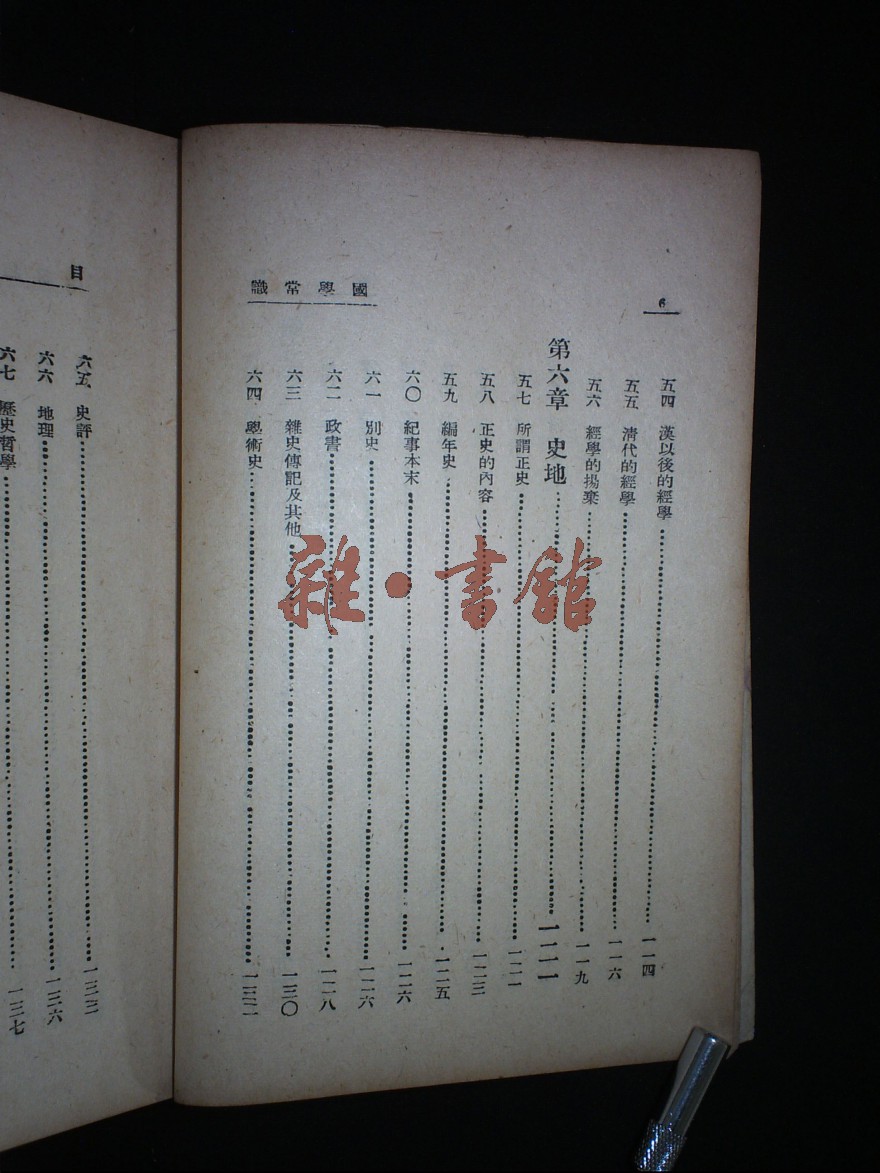 6
國學常識
五四 漢以後的經學……一一四
五五 清代的經學……一一六
五六 經學的揚棄……一一九
第六章 史地……一二一
五七 所謂正史……一二一
五八 正史的內容……一二三
五九 編年史……一二五
六〇 紀事本末……一二六
六一 別史……一二六
六二 政書……一二八
六三 雜史傳記及其他……一三〇
六四 學術史……一三二
目
六五 史評……一三三
六六 地理……一三六
六七 歷史哲學……一三七
雜·書館